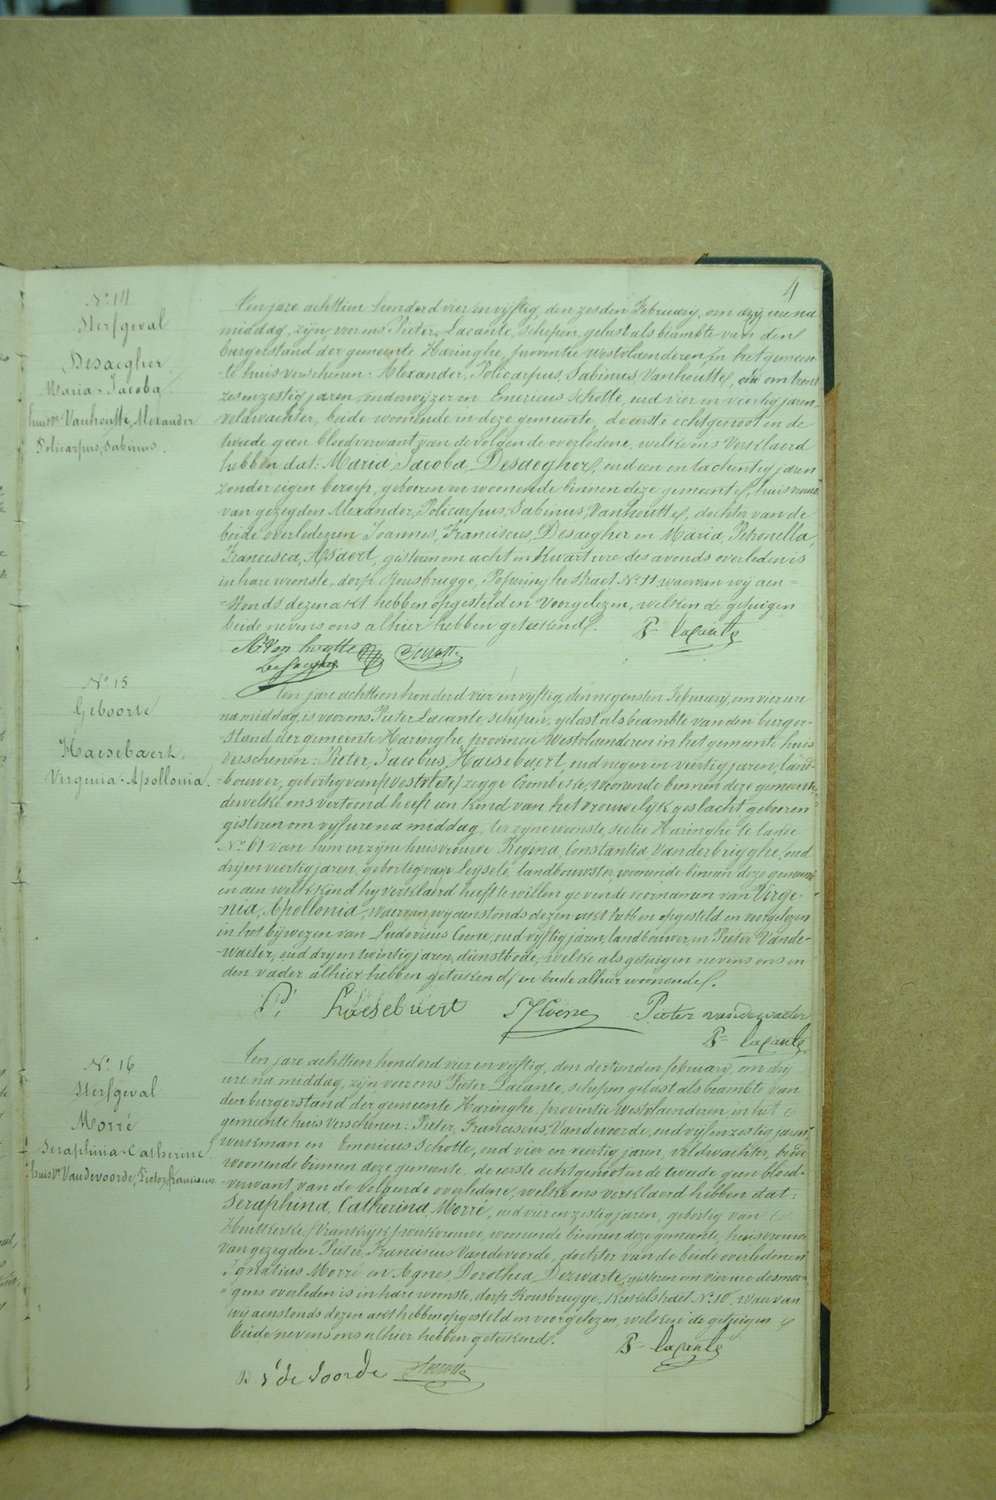 4
N° 14
Sterfgeval
Desaegher
Maria-Jacoba
huisve Vanhoutte, Alexander
Policarpus, Sabinus.
Ten jare achttien honderd vier en vyftig, den zesden February, om dry ure na
middag, zyn voor ons Pieter, Lacante, schepen, gelast als beambte van den
burgerstand der gemeente Haringhe, provintie Westvlaanderen, in het gemeen-
te huis verschenen: Alexander, Policarpus, Sabinus, Vanhoutte, oud om trent
zes en zestig jaren, onderwyzer en Emericus Schotte, oud vier en veertig jaren,
veldwachter, beide woonende in deze gemeente, de eerste echtgenoot en de
tweede geen bloedverwant van de volgende overledene, welke ons verklaerd
hebben dat: Maria, Jacoba, Desaegher, oud een en tachentig jaren
zonder eigen beroep, geboren en woonende binnen deze gemeente, huisvrouw
van gezegden Alexander, Policarpus, Sabinus, Vanhoutte, dochter van de
beide overledenen Joannes, Franciscus, Desaegher en Maria, Petronella,
Francisca, Assaert, gisteren om acht en kwart ure des avonds overleden is
in hare woonste, dorp Rousbrugge, Poperinghe straet N° 11, waervan wy aen-
-stonds dezen act hebben opgesteld en voorgelezen, welken de getuigen
beide nevens ons alhier hebben geteekend.
P= Lacante
A Van houtte
Schotte
N° 15
Geboorte
Haesebaert.
Virginia-Apollonia.
Ten jare achttien honderd vier en vyftig, den negensten February, om vier ure
na middag, is voor ons Pieter Lacante schepen, gelast als beambte van den burger-
-stand der gemeente Haringhe, provincie Westvlaanderen in het gemeente huis
verschenen: Pieter, Jacobus, Haesebaert, oud negen en veertig jaren, land-
-bouwer, gebortig van Westvleteren zegge Crombeke, woonende binnen deze gemeente
dewelke ons vertoond heeft een kind van het vrouwelyk geslacht geboren
gisteren om vyf ure na middag, ter zyne woonste, sectie Haringhe te lande
N° 61 van hem en zyne huisvrouwe Regina, Constantia, Vanderbrigghe, oud
dry en veertig jaren, gebortig van Leysele, landbouwster, woonende binnen deze gemeente
en aen welk kind hy verklaerd heeft te willen geven de voornamen van Virgi-
nia, Apollonia, waervan wy aenstonds dezen act hebben opgesteld en voorgelezen
in het bywezen van Ludovicus Coene, oud vyftig jaren, landbouwer, en Pieter Vande-
-waeter, oud dry en twintig jaren, dienstbode, welke als getuigen nevens ons en
den vader alhier hebben geteekend, en beide alhier woonende.
P. Haesebaert
L Coene
Pieter vandewaeter
P= Lacante
N° 16
Sterfgeval
Morré
Seraphina-Catherina
huisve Vandevoorde, Pieter, franciscus
Ten jare achttien honderd vier en vyftig, den dertienden february, om dry
ure na middag, zyn voor ons Pieter Lacante, schepen gelast als beambte van
den burgerstand der gemeente Haringhe, provintie Westvlaanderen in het
gemeente huis verschenen: Pieter, Franciscus, Vandevoorde, oud vyf en zestig jaren,
werkman en Emericus Schotte, oud vier en veertig jaren, veldwachter, beide
woonende binnen deze gemeente, de eerste echtgenoot en de tweede geen bloed-
-verwant van de volgende overledene, welke ons verklaerd hebben dat:
Seraphina, Catherina, Morré, oud vier en zestig jaren, gebortig van
Houtkerke (Vrankryk) werkvrouwe, woonende binnen deze gemeente, huisvrouwe
van gezegden Pieter, Franciscus Vandevoorde, dochter van de beide overledenen
Ignatius Morré en Agnes, Dorothea, Dezwarte, gisteren om vier ure des mor-
-gens overleden is in hare woonste, dorp Rousbrugge, Kerkstraet N° 10, waervan
wy aenstonds dezen act hebben opgesteld en voorgelezen, welken de getuigen
beide nevens ons alhier hebben geteekend.
P= Lacante
P v de voorde
Schotte